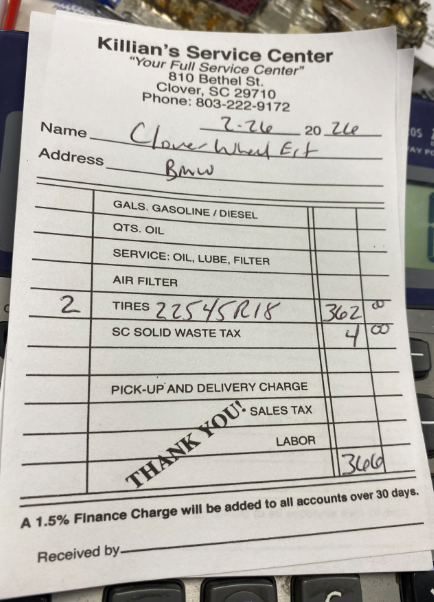 Killian's Service Center
"Your Full Service Center"
810 Bethel St.
Clover, SC 29710
Phone: 803-222-9172
2-26 20 26
Name Clover Wheel Ert
Address BMW
GALS. GASOLINE / DIESEL
QTS. OIL
SERVICE: OIL, LUBE, FILTER
AIR FILTER
2 TIRES 22545R18 362 00
SC SOLID WASTE TAX 4 00
PICK-UP AND DELIVERY CHARGE
THANK YOU!
SALES TAX
LABOR
366
A 1.5% Finance Charge will be added to all accounts over 30 days.
Received by